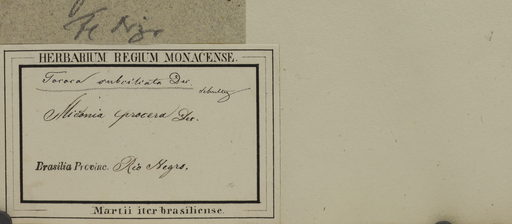 HERBARIUM REGIUM MONACENSE.
Tococa subciliata Dec.
Miconia procera Dec.
Brasilia Provinc. Rio Negro.
Martii iter brasiliense.